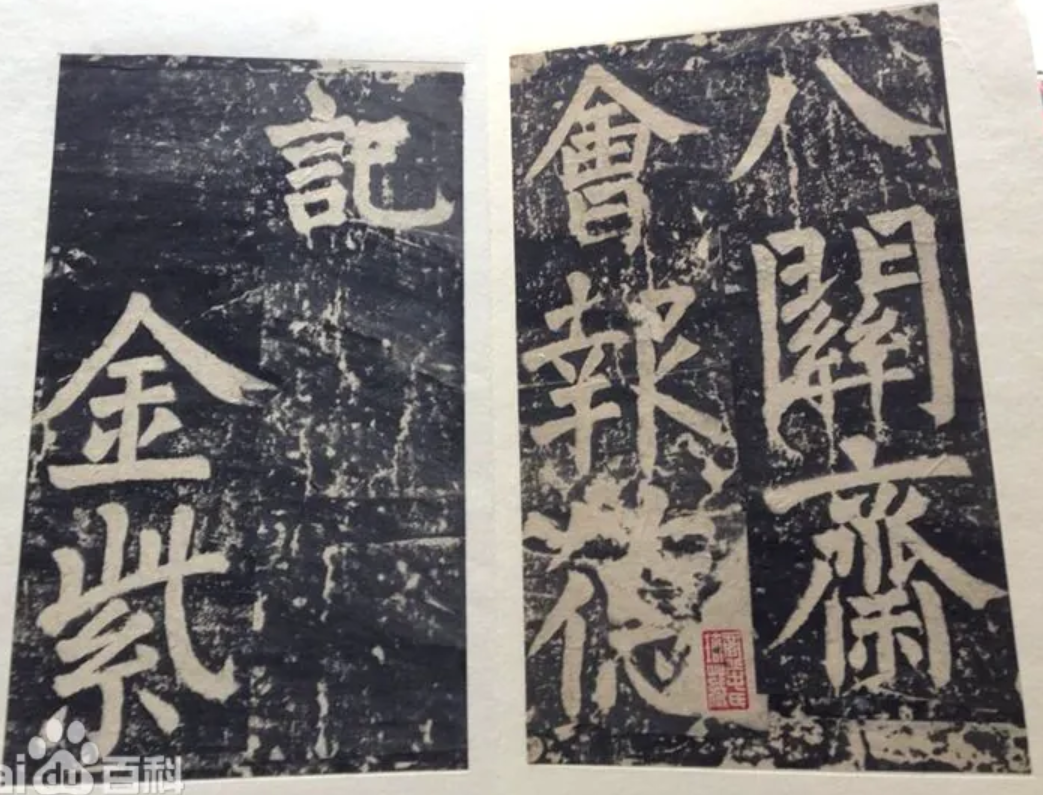 八關齋
會報
記
金紫
ai du 百科